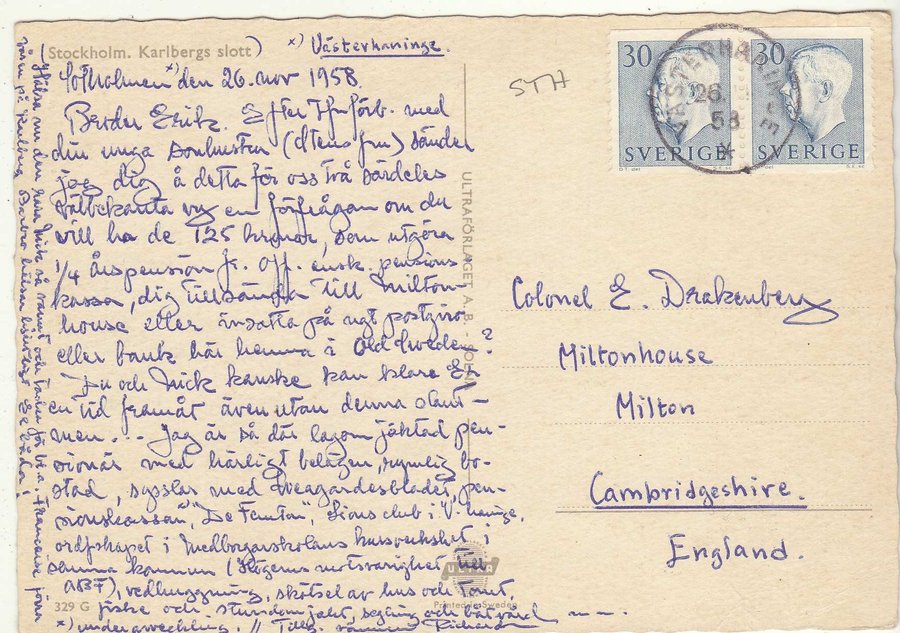 Stockholm. Karlbergs slott) *) Västerhaninge.
den 26. nov 1958.
Broder Erik. Efter med
din unga (Stens fru) sänder
jag dig å detta för oss två särdeles
välbekanta vy en förfrågan om du
vill ha de 125 kronor, som utgöra
1/4 årspension fr. Off. ensk. pensions
kassa, dig tillsända till Milton-
house eller insatta på ngt postgiro
eller bank här hemma i Old Sweden?
Du och Mick kanske kan klara Er
en tid framåt även utan denna
Jag är så där lagom jäktad pen-
sionär med härligt belägen, rymlig bo-
stad, sysslar med Sveagardesbladet, pen-
sionskassan, "De Femton", Lions club i V-haninge,
ordfskapet i Medborgarskolans kursverksamhet i
samma kommun (Högerns motsvarighet till
ABF), vedhuggning, skötsel av hus och tomt,
fiske och stundom jakt, segling och båtvård
*) under avveckling. // Tillg. Richard
(Hälsa nu den kära Mick så varmt och
våren på Karlberg Barbro hälsar
329 G
ULTRAFÖRLAGET A. B. - SOLNA
ultra
Printed in Sweden
STH
30 30
SVERIGE SVERIGE
VÄSTERHANINGE
26
58
Colonel E. Drakenberg
Miltonhouse
Milton
Cambridgeshire.
England.